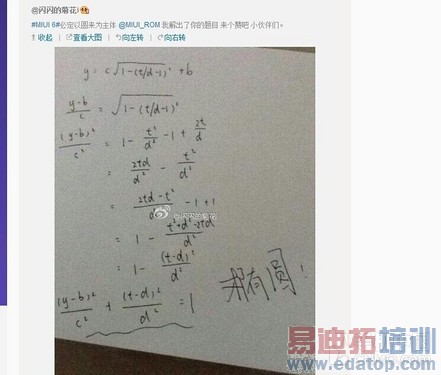 @闪闪的菊花i
#MIUI 6#必定以圆来为主体 @MIUI_ROM 我解出了你的题目 来个赞吧 小伙伴们。
收起 | 查看大图 向左转 向右转
y = c√(1-(t/d-1)²) + b
(y-b)/c = √(1-(t/d-1)²)
(y-b)²/c² = 1 - t²/d² - 1 + 2t/d
= 2td/d² - t²/d²
= (2td - t²)/d² - 1 + 1
= 1 - (t²+d²-2td)/d²
= 1 - (t-d)²/d²
(y-b)²/c² + (t-d)²/d² = 1
有圆!
@闪闪的菊花
易迪拓培训
www.edatop.com